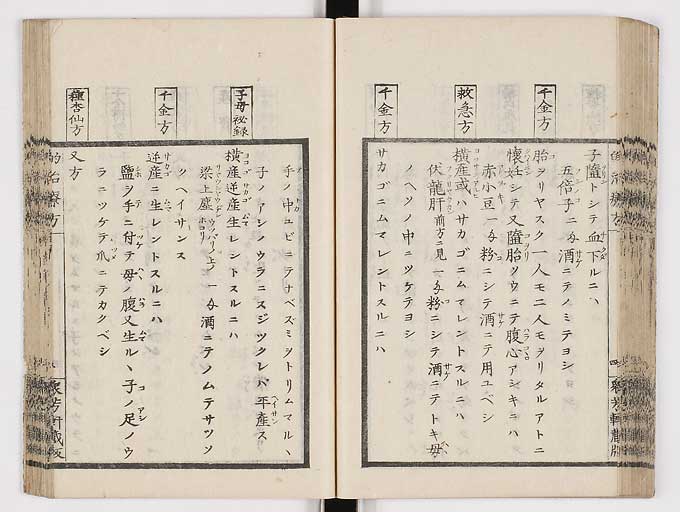 千金方
救急方
千金方
子隨トシテ血下ルニハ
五倍子ニ匁酒ニテノミテヨシ
胎ヲリヤスク一人モ二人モヲリタルアトニ
懐妊シテ又墮胎ソウニテ腹心アシキニハ
赤小豆一匁粉ニシテ酒ニテ用ユベシ
横産或ハサカゴニムマレントスルニハ
伏龍肝前方ニ見一匁粉ニシテ酒ニテトキ母
ノヘソノ中ニツケテヨシ
サカゴニムマレントスルニハ
子母秘録
千金方
種杏仙方
手ノ中ユビニテナベズミヲトリムマルヽ
子ノアシノウラニスジツクレバ平産ス
横産逆産生レントスルニハ
梁上塵 ウツバリノ上ノホコリ 一匁酒ニテノムテサツソ
クヘイサンス
逆産ニ生レントスルニハ
鹽ヲ手ニ付テ母ノ腹又生ルヽ子ノ足ノウ
ラニツケテ爪ニテカクベシ
又方